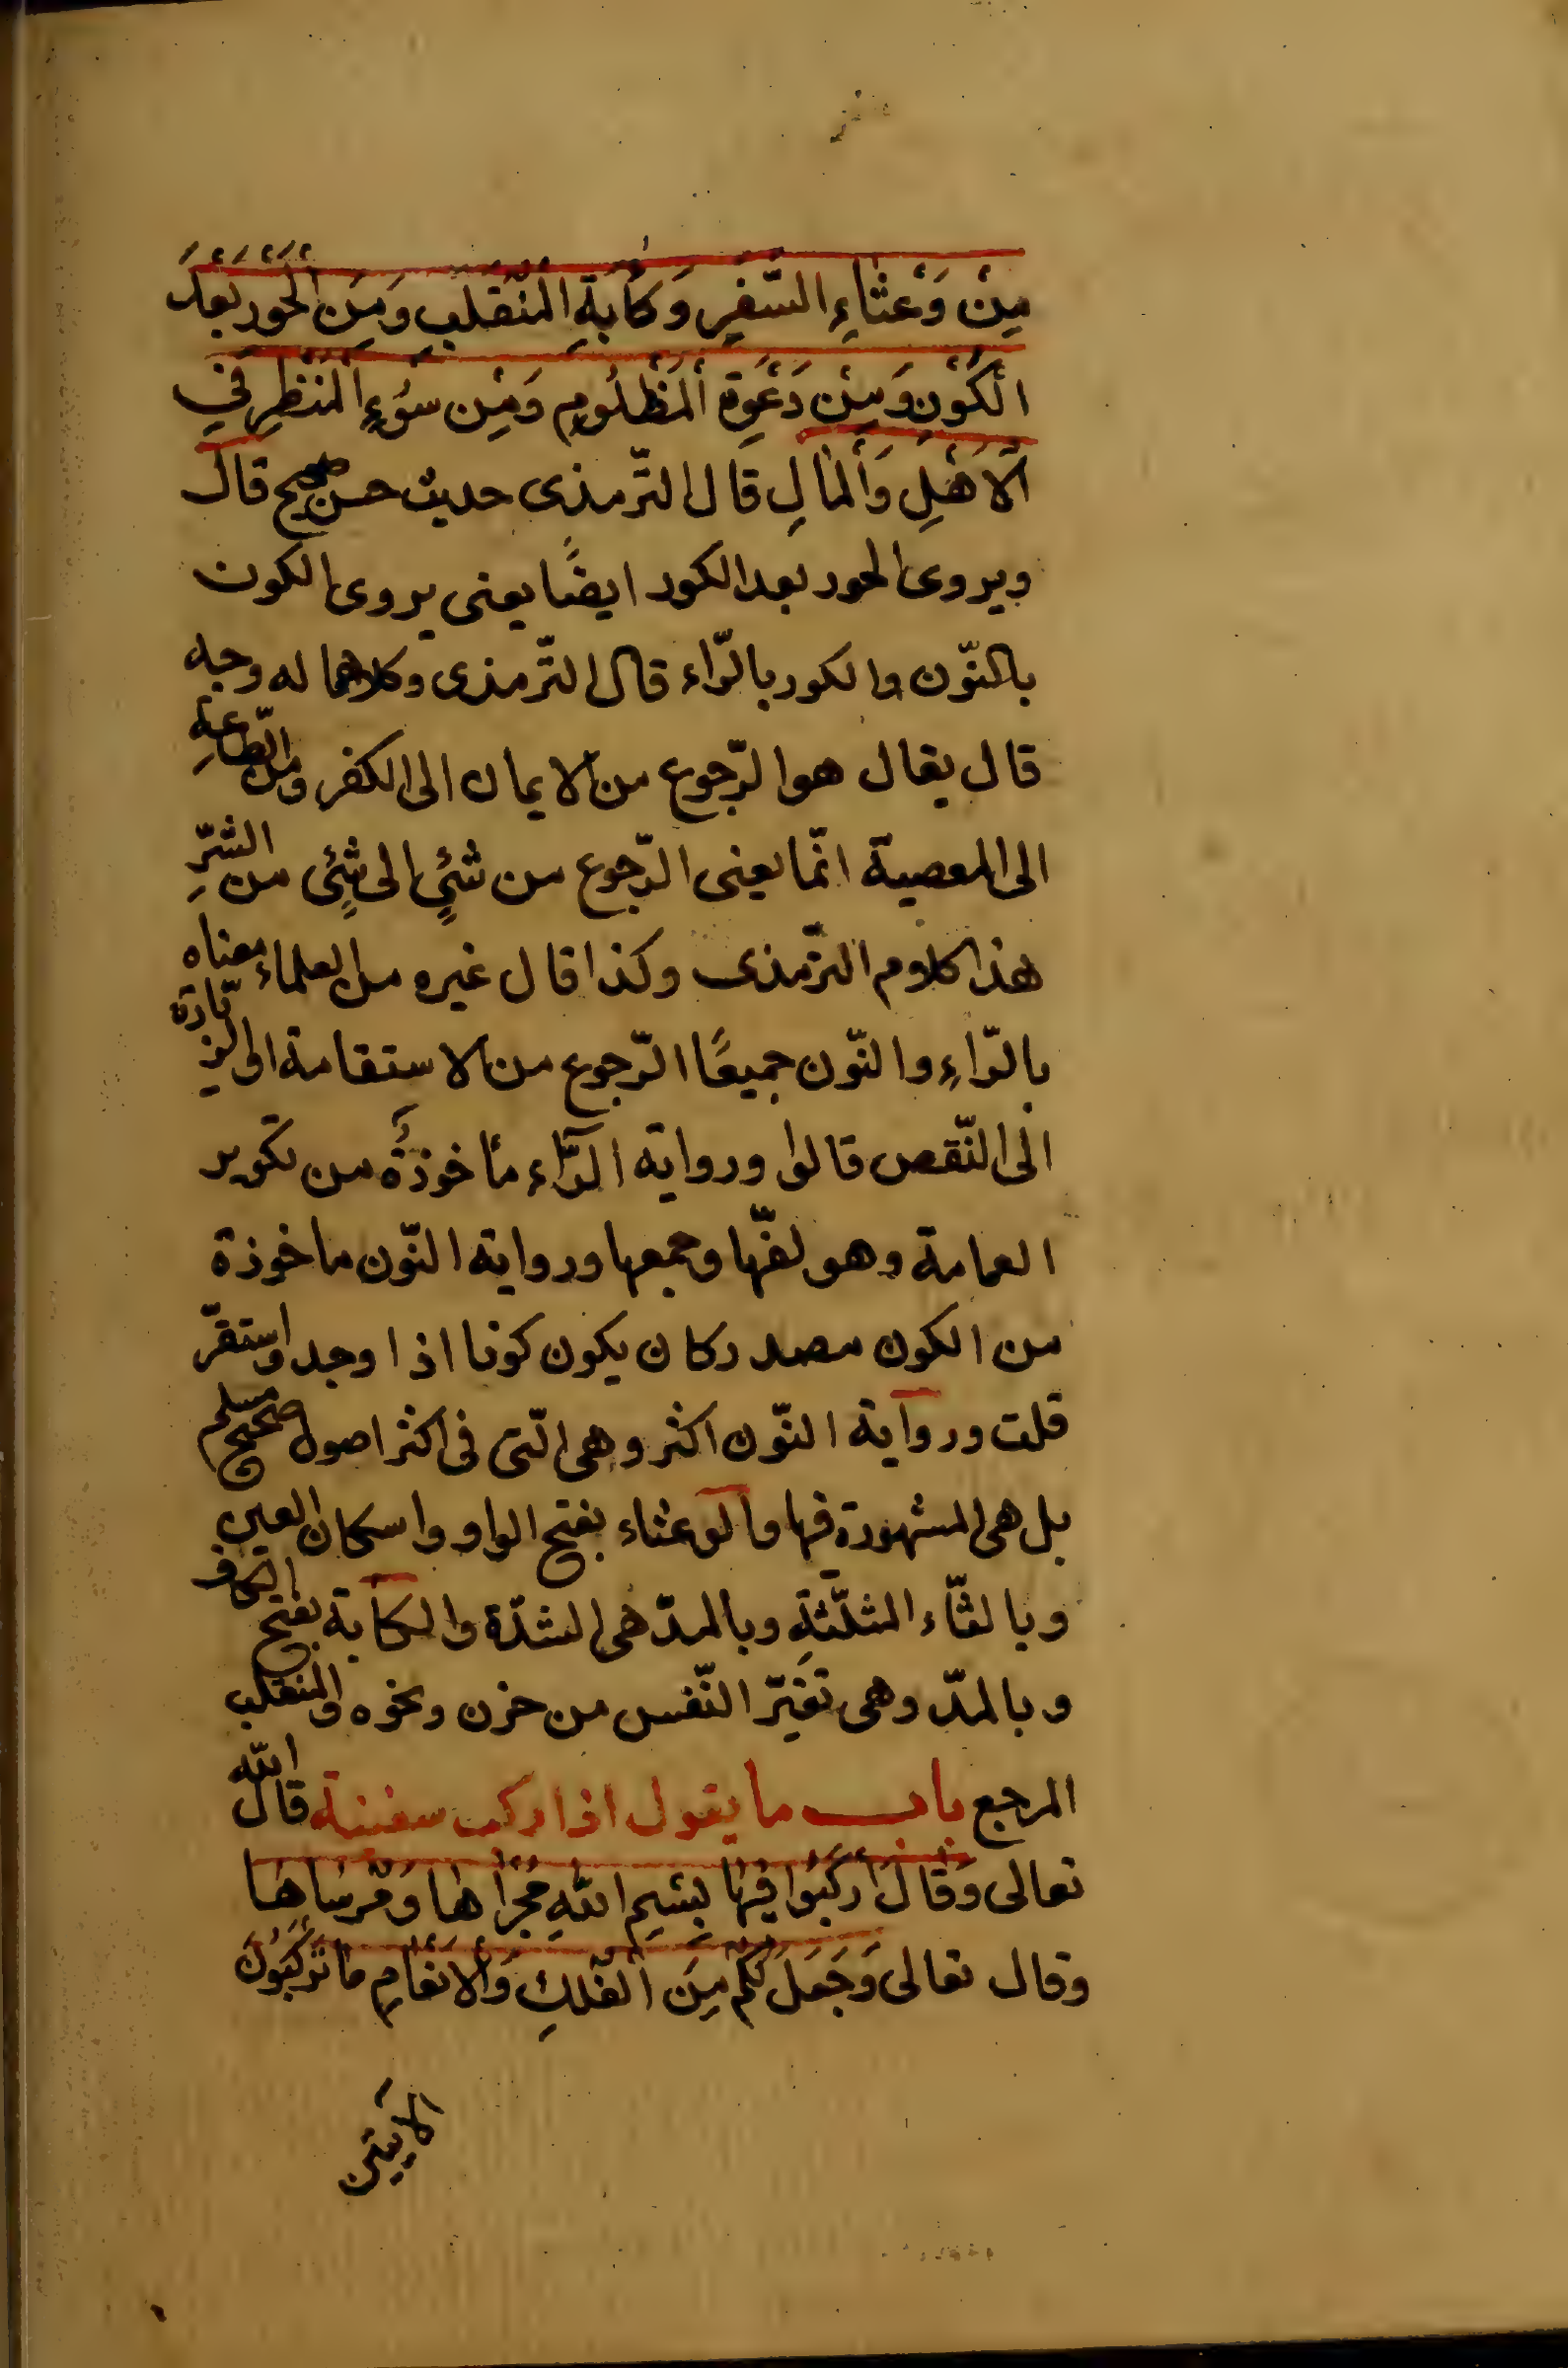 مِنْ وَعْثَاءِ السَّفَرِ وَكَآبَةِ الْمُنْقَلَبِ وَمِنَ الْحَوْرِ بَعْدَ
الْكَوْنِ وَمِنْ دَعْوَةِ الْمَظْلُومِ وَمِنْ سُوءِ الْمَنْظَرِ فِي
الْاَهْلِ وَالْمَالِ قال التّرمذى حديث حسن صحيح قال
ويروى الحور بعد الكور ايضًا يعنى يروى الكون
بالنّون والكور بالرّاء قال التّرمذى وكلاهما له وجه
قال يقال هو الرّجوع من الايمان الى الكفر ومن الطّاعةِ
الى المعصية انّما يعنى الرّجوع من شئٍ الى شئٍ من الشّرِّ
هذا كلام التّرمذى وكذا قال غيره من العلماء معناه
بالرّاءِ والنّون جميعًا الرّجوع من الاستقامة الى الزيادة
الى النّقص قالوا ورواية الرّاء مأخوذةُ من تكوير
العمامة وهو لفّها وجمعها ورواية النّون ماخوذة
من الكون مصدر كان يكون كونا اذا وجد واستقرّ
قلت ورواية النّون اكثر وهى الّتى فى اكثر اصول صحيح مسلم
بل هى المشهورة فيها والوعثاء بفتح الواو واسكان العين
وبالثّاء المثلّثةِ وبالمدّ هى الشدّة والكآبة بفتح الكاف
وبالمدّ وهى تغيّر النّفس من حزن ونحوه والمنقلب
المرجع باب ما يقول اذا ركب سفينة قال اللّه
تعالى وَقَالَ ارْكَبُوا فِيهَا بِسْمِ اللّٰهِ مَجْرٰاهَا وَمُرْسَاهَا
وقال تعالى وَجَعَلَ لَكُمْ مِنَ الْفُلْكِ وَالْاَنْعَامِ مَا تَرْكَبُونَ
الايتين